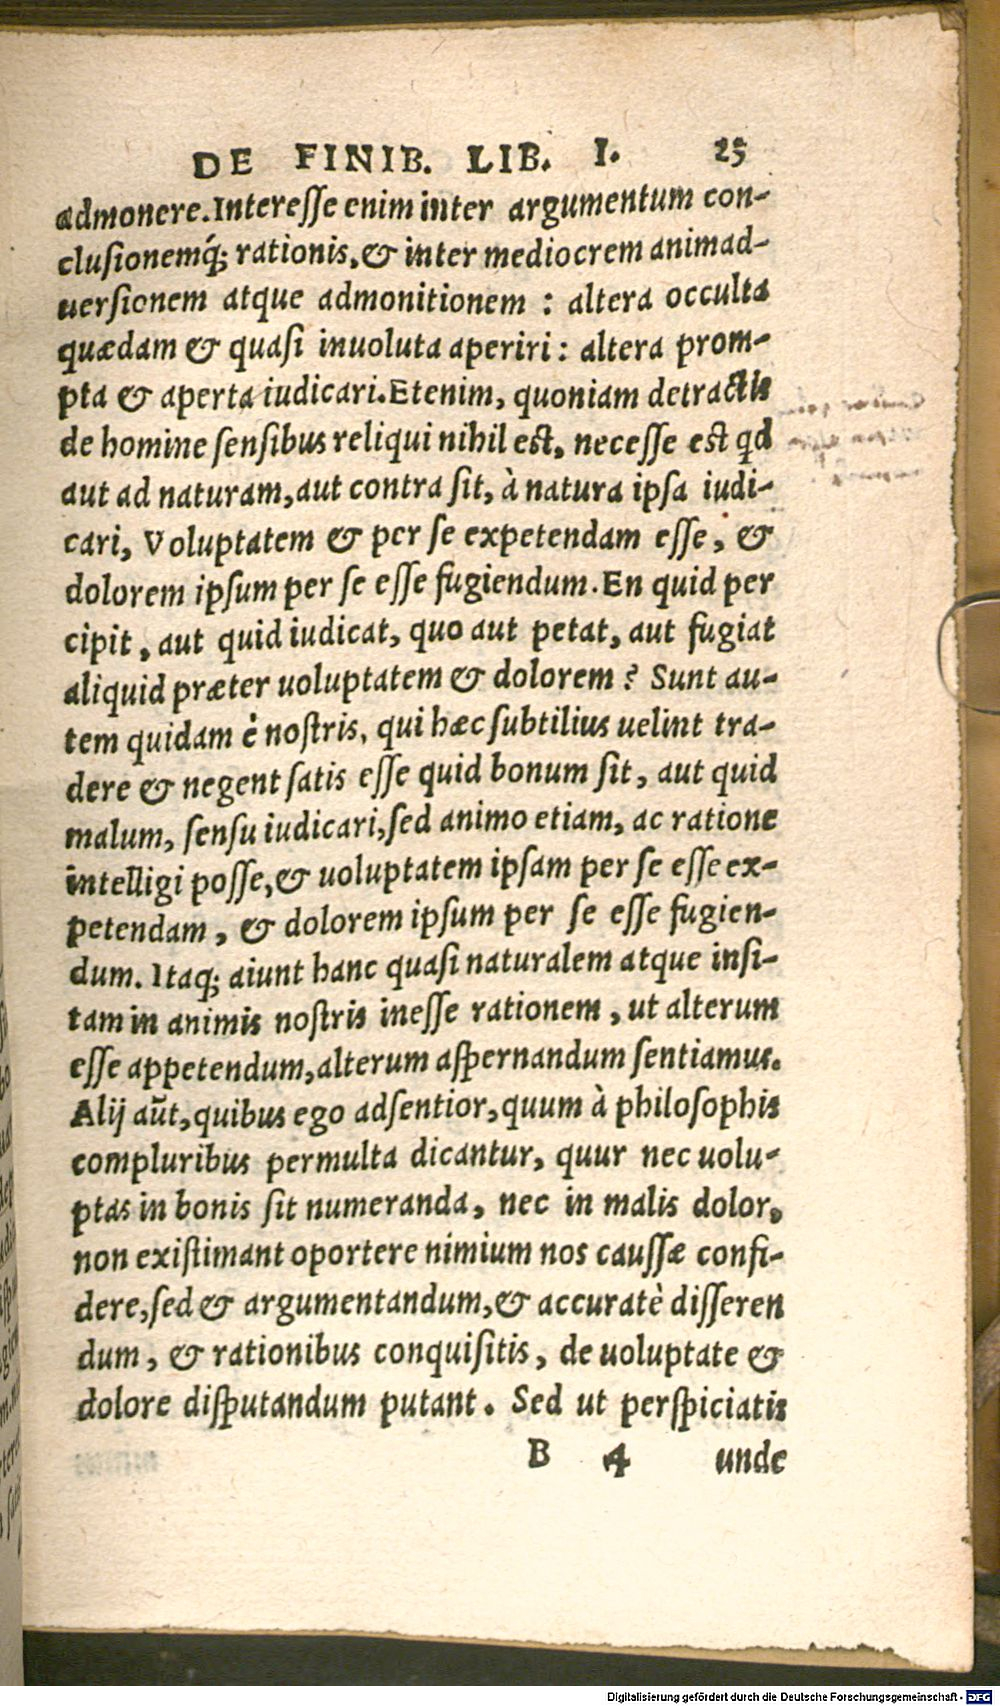 DE FINIB. LIB. I. 25
admonere.Intereſſe enim inter argumentum con-
cluſionemq́; rationis, & inter mediocrem animad-
uerſionem atque admonitionem : altera occulta
quædam & quaſi inuoluta aperiri : altera prom-
pta & aperta iudicari.Etenim, quoniam detractis
de homine ſenſibus reliqui nihil eſt, neceſſe eſt qd
aut ad naturam, aut contra ſit, à natura ipſa iudi-
cari, Voluptatem & per ſe expetendam eſſe, &
dolorem ipſum per ſe eſſe fugiendum. En quid per
cipit, aut quid iudicat, quo aut petat, aut fugiat
aliquid præter uoluptatem & dolorem? Sunt au-
tem quidam è noſtris, qui hæc ſubtilius uelint tra-
dere & negent ſatis eſſe quid bonum ſit, aut quid
malum, ſenſu iudicari, ſed animo etiam, ac ratione
intelligi poſſe, & uoluptatem ipſam per ſe eſſe ex-
petendam, & dolorem ipſum per ſe eſſe fugien-
dum. Itaq; aiunt hanc quaſi naturalem atque inſi-
tam in animis noſtris ineſſe rationem, ut alterum
eſſe appetendum, alterum aſpernandum ſentiamus.
Alij aūt, quibus ego adſentior, quum à philoſophis
compluribus permulta dicantur, quur nec uolu-
ptas in bonis ſit numeranda, nec in malis dolor,
non exiſtimant oportere nimium nos cauſſæ confi-
dere, ſed & argumentandum, & accuratè diſſeren
dum, & rationibus conquiſitis, de uoluptate &
dolore diſputandum putant. Sed ut perſpiciatis
B 4 unde
Digitalisierung gefördert durch die Deutsche Forschungsgemeinschaft - DFG